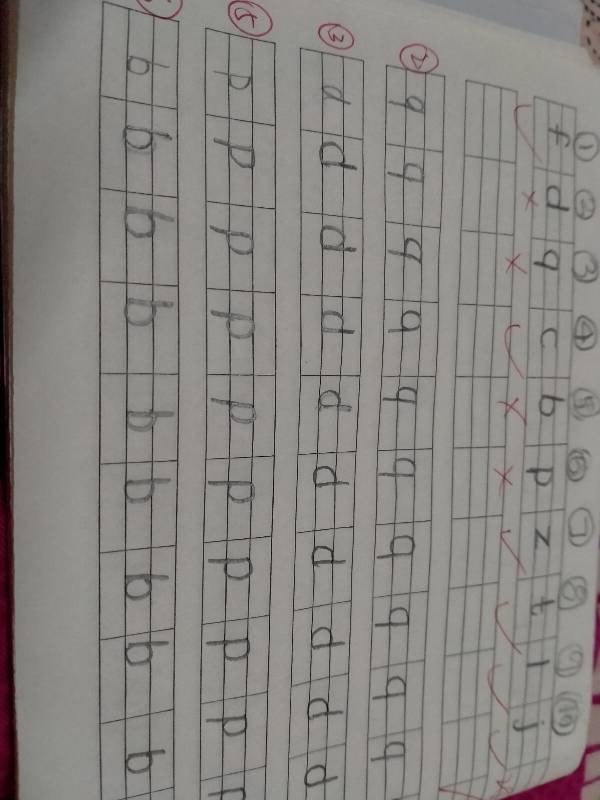 ① ② ③ ④ ⑤ ⑥ ⑦ ⑧ ⑨ ⑩
f d q c b p z t l j
✓ × × ✓ × × ✓ ✓ ✓ ✓
② q q q q q q q q q q
③ d d d d d d d d d d
⑤ p p p p p p p p p p
b b b b b b b b b